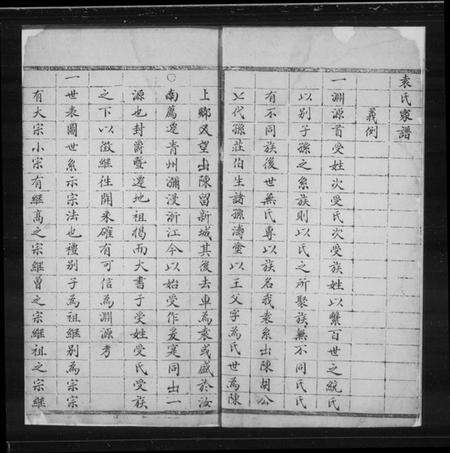 袁氏家譜
義例
一淵源首受姓次受氏次受族姓以繫百世之統氏
以別子孫之系族則以氏之所聚族無不同氏氏
有不同族後世無氏專以族名我袁系出陳胡公
之代孫莊伯生諸孫濤塗以王父字為氏世為陳
上卿及望出陳留新城其後去車為袁或盛於汝
○南蔫遷青州瀰漫浙江今以始受作爰寔同出一
源也封爵暨遷地祖揭而大書于受姓受氏受族
之下以徵繼往開來確有可信為淵源考
一世表圖世系示宗法也禮別子為祖繼別為宗宗
有大宗小宗有繼高之宗繼曾之宗繼祖之宗繼